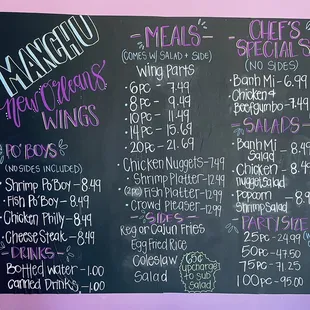 MANCHU
New Orleans
WINGS
PO' BOYS
(NO SIDES INCLUDED)
• Shrimp Po'Boy - 8.49
• Fish Po'Boy - 8.49
• Chicken Philly - 8.49
• Cheese Steak - 8.49
- DRINKS -
Bottled Water - 1.00
Canned Drinks - 1.00
- MEALS -
(COMES W/ SALAD + SIDE)
Wing Parts
6pc - 7.49
8pc - 9.49
10pc - 11.49
14pc - 15.69
20pc - 21.69
• Chicken Nuggets - 7.49
• Shrimp Platter - 12.99
• Fish Platter - 12.99
• Crowd Pleaser - 12.99
- SIDES -
Reg or Cajun Fries
Egg Fried Rice
Coleslaw
Salad
upcharge
to sub
Salad
CHEF'S
SPECIALS
(NO SIDES)
• Banh Mi - 6.99
• Chicken &
Beef Gumbo - 7.49
- SALADS -
• Banh Mi - 8.49
Salad
• Chicken - 8.49
nugget Salad
• Popcorn - 8.99
Shrimp Salad
PARTY SIZE
25pc - 24.99
50pc - 47.50
75pc - 71.25
100pc - 95.00